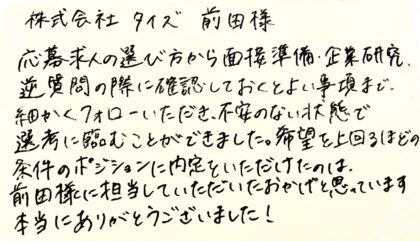 株式会社 タイズ 前田様
応募求人の選び方から面接準備・企業研究、
逆質問の際に確認しておくとよい事項まで、
細かくフォローいただき、不安のない状態で
選考に臨むことができました。希望を上回るほどの
条件のポジションに内定をいただけたのは、
前田様に担当していただいたおかげと思っています
本当にありがとうございました！